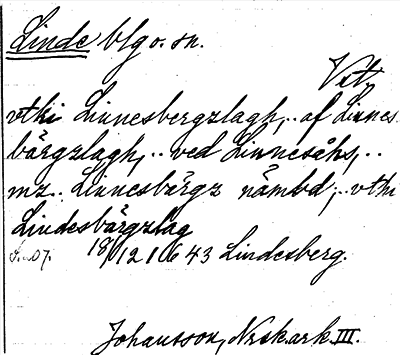 Linde blg o. sn.
Vstm
vthi Linnesbergzlagh, .. af Linnes
bärgzlagh, .. ved Linnesåhs, ..
mz .. Linnesbärgz nämbd, .. vthi
Lindesbärgzlag
18/12 1643 Lindesberg.
Johansson, Noraskark III.